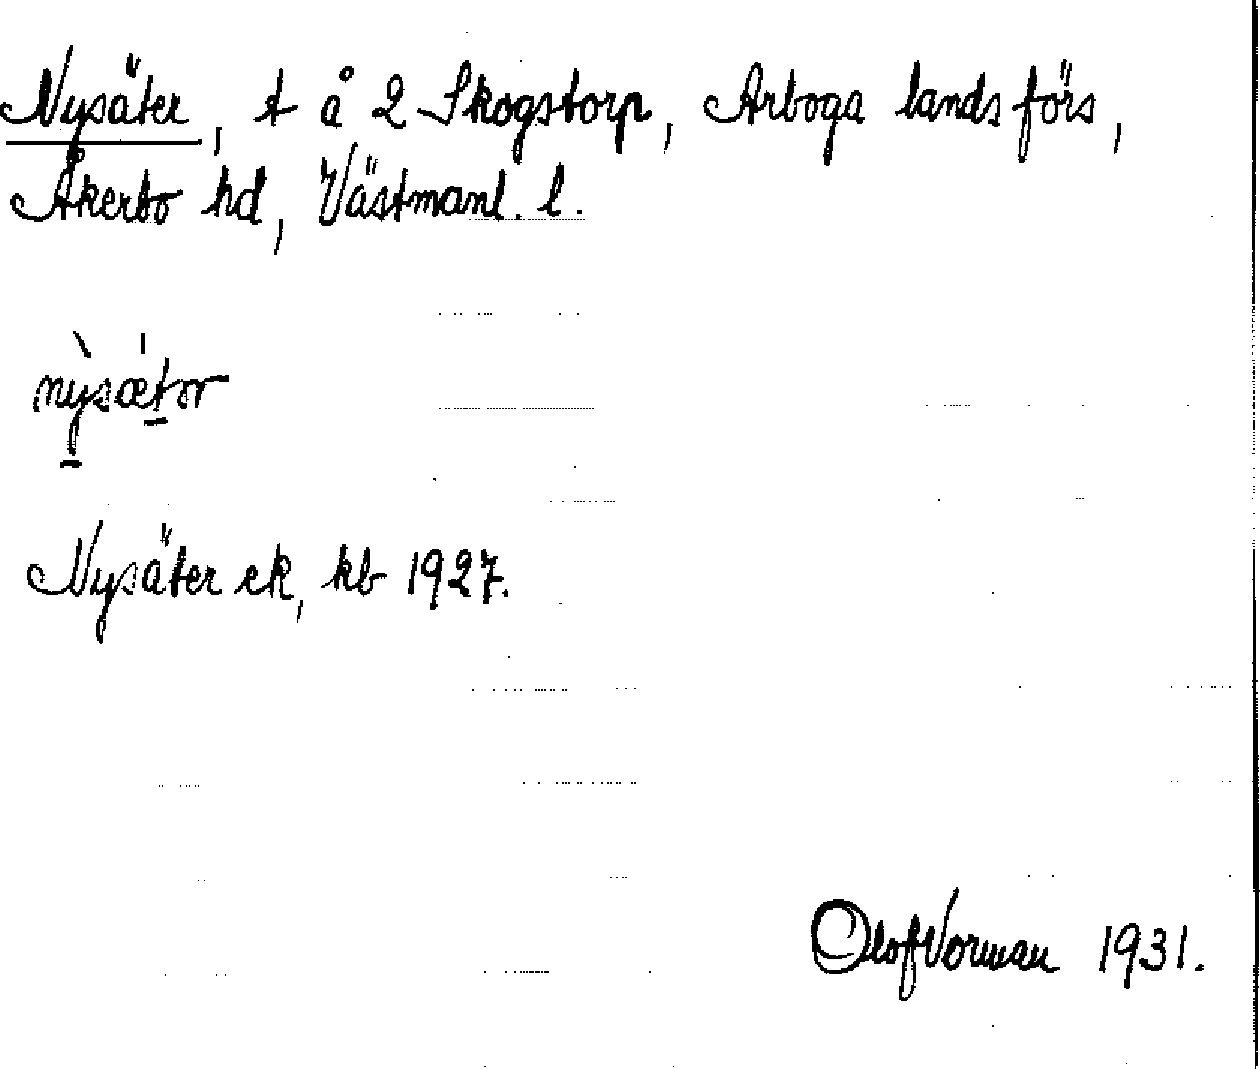 Nysäter, t å 2 Skogstorp, Arboga landsförs,
Åkerbo hd, Västmanl. l.
nỳsǽtər
Nysäter ek, kb 1927.
Olof Vorman 1931.